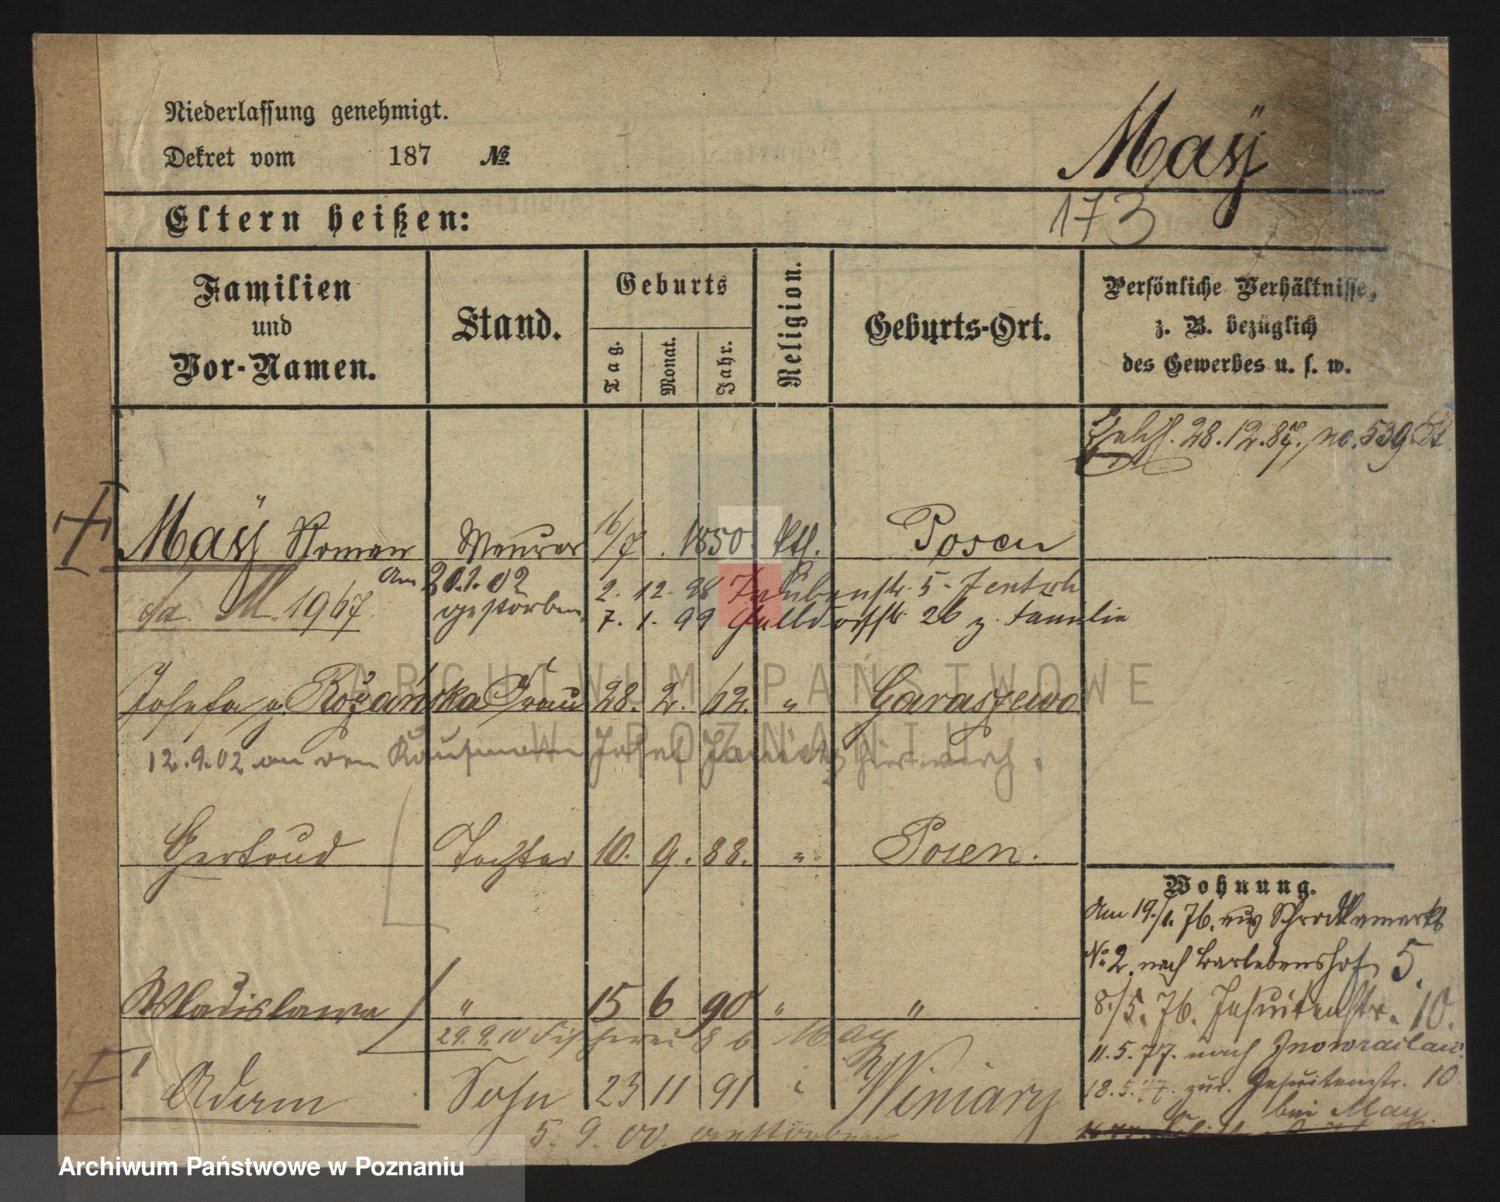 Niederlassung genehmigt.
Dekret vom 187 №
Maÿ
Eltern heißen:
173
Familien und Vor-Namen.
Stand.
Geburts
Tag.
Monat.
Jahr.
Religion.
Geburts-Ort.
Persönliche Verhältnisse, z. B. bezüglich des Gewerbes u. s. w.
28.12.87. no. 539
Maÿ Roman Maurer 16/7. 1850 Kth. Posen
am 20.1.02 gestorben
2. 12. 98 Taubenstr. 5
M. 1967
7. 1. 99 26 z. Familie
Josefa g. Różańska Frau 28. 2. 62. " Garaszewo
12.9.02 an den Kaufmann Josef hier verh.
Gertrud Tochter 10. 9. 88. " Posen.
Wladislawa " 15 6 90 " "
29.9.10 Fischerei 8 b May
Adam Sohn 23 11 91 " Winiary
5. 9. 00. gestorben
Wohnung.
Am 19./1. 76. aus Schrodkamarkt
No 2. nach Bartebenshof 5.
8./5. 76. Jesuitenstr. 10.
11. 5. 77. nach Inowraclaw
18. 5. 77. zur. Jesuitenstr. 10
bei May
ARCHIWUM PAŃSTWOWE
W POZNANIU
Archiwum Państwowe w Poznaniu